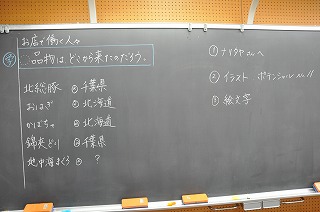 お店で働く人々
品物は、どこから来たのだろう。
北総豚 千葉県
おはぎ 北海道
かぼちゃ 北海道
錦爽どり 千葉県
地中海まぐろ ?
① へ
② イラスト
③ 絵文字